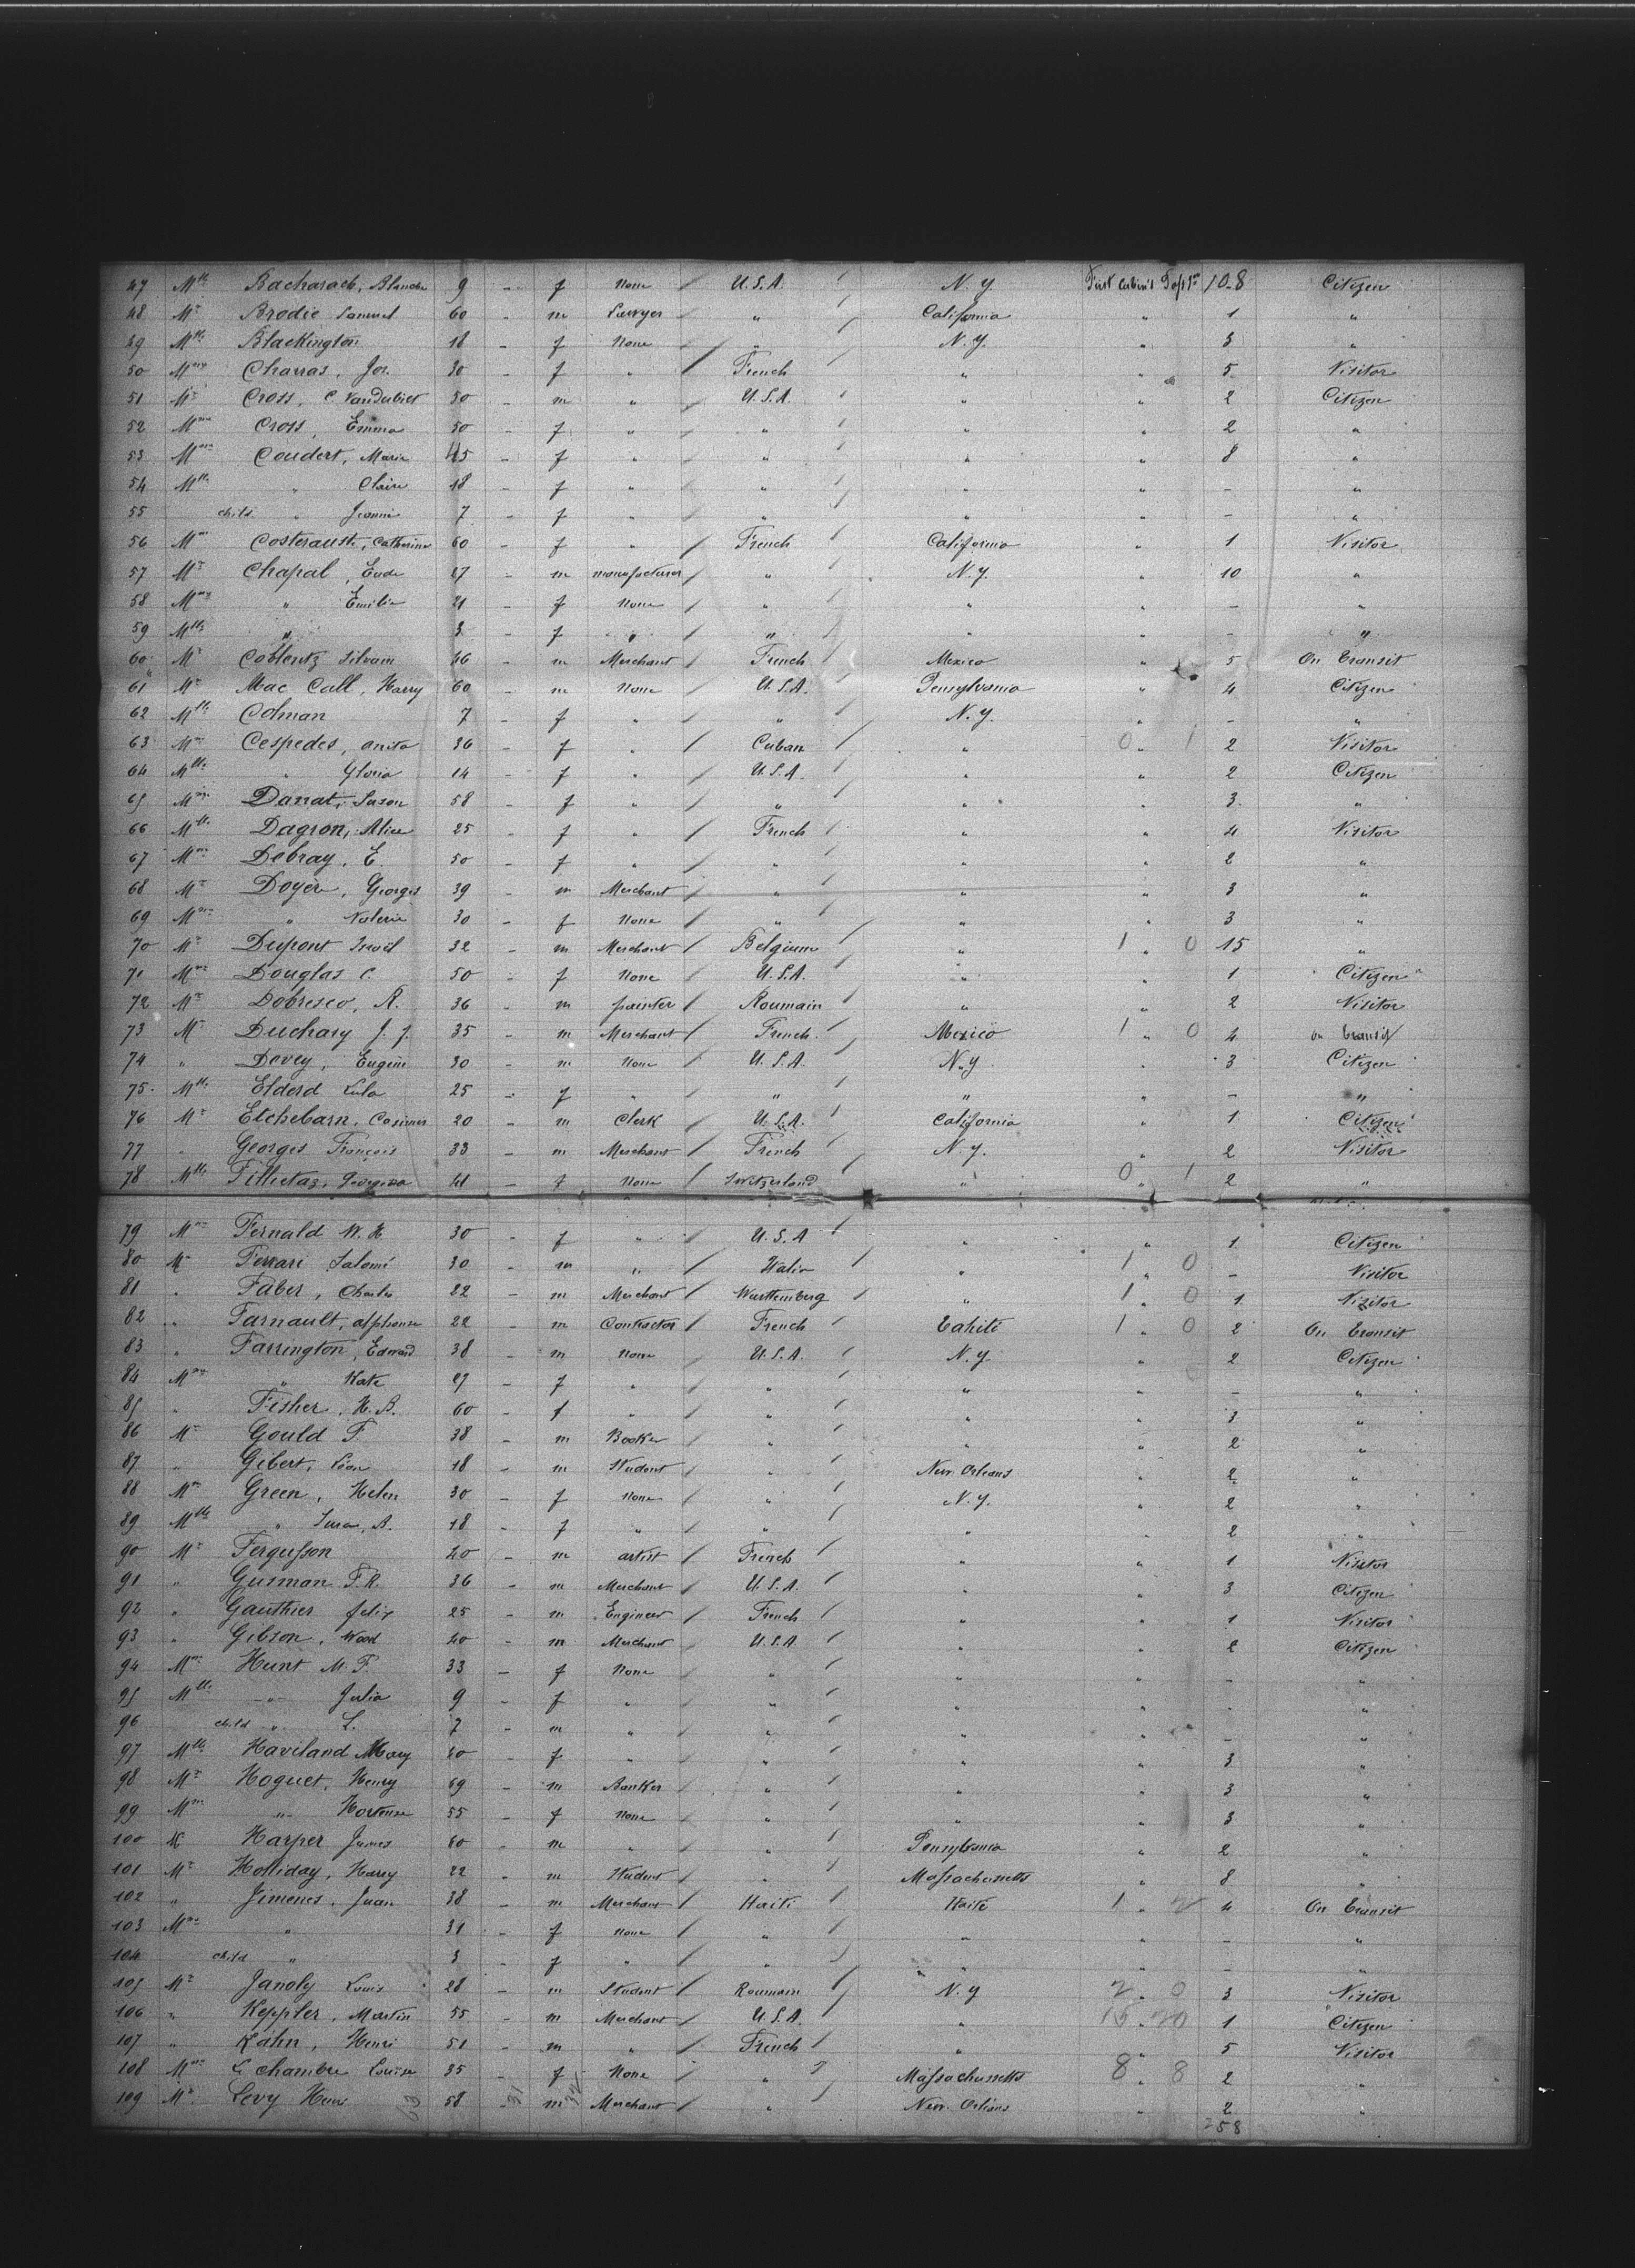 47 Mlle Bacharach, Blanche 9 - f None U.S.A. N.Y. First Cabin 10-8 Citizen
48 Mr Brodie Samuel 60 - m Lawyer " California " 1 "
49 Mlle Blackington 18 - f None " N.Y. " 3 "
50 Mme Charras, Jos. 30 - f " French " " 5 Visitor
51 Mr Cross, C. Vanderbilt 50 - m " U.S.A. " " 2 Citizen
52 Mme Cross, Emma 50 - f " " " " 2 "
53 Mme Coudert, Marie 45 - f " " " " 8 "
54 Mlle " Claire 18 - f " " " " - "
55 child " Jeanne 7 - f " " " " - "
56 Mme Catherine 60 - f " French California " 1 Visitor
57 Mr Chapal, 27 - m manufacturer " N.Y. " 10 "
58 Mme " Emilie 21 - f None " " " - "
59 Mlle " 3 - f " " " " - "
60 Mr Coblentz Silvain 46 - m Merchant French Mexico " 5 On transit
61 Mr Mac Call, Harry 60 - m None U.S.A. Pensylvania " 4 Citizen
62 Mlle Colman 7 - f " " N.Y. " - "
63 Mme Cespedes, anita 36 - f " Cuban " 0 " 1 2 Visitor
64 Mlle " Gloria 14 - f " U.S.A. " " 2 Citizen
65 Mme Danat, Suson 58 - f " " " " 3 "
66 Mlle Dagron, Alice 25 - f " French " " 4 Visitor
67 Mme Debray, E. 50 - f " " " " 2 "
68 Mr Doyen, Georges 39 - m Merchant " " " 3 "
69 Mme " Valerie 30 - f None " " " 3 "
70 Mr Dupont 32 - m Merchant Belgium " 1 " 0 15 "
71 Mme Douglas C. 50 - f None U.S.A. " " 1 Citizen
72 Mr Dobresco, R. 36 - m painter Roumain " " 2 Visitor
73 Mr Duchary J. J. 35 - m Merchant French Mexico 1 " 0 4 on transit
74 " Dovey, Eugene 30 - m None U.S.A. N.Y. " 3 Citizen
75 Mlle Elderd Lula 25 - f " " " " - "
76 Mr Etchebarn, Casimir 20 - m Clerk U.S.A. California " 1 Citizen
77 " Georges François 33 - m Merchant French N.Y. " 2 Visitor
78 Mlle Fillietaz, Georgina 41 - f None Switzerland " 0 " 1 2 "
79 Mme Fernald W. H. 30 - f " U.S.A " " 1 Citizen
80 Mr Ferrari Salomé 30 - m " Italia " 1 " 0 - Visitor
81 " Faber, Charles 22 - m Merchant Wurttemberg " 1 " 0 1 Visitor
82 " Farnault, alphonse 22 - m Contractor French Tahiti 1 " 0 2 On transit
83 " Farrington, Edward 38 - m None U.S.A. N.Y. " 2 Citizen
84 Mme " Kate 27 - f " " " " - "
85 " Fisher, H. B. 60 - f " " " " 3 "
86 Mr Gould F 38 - m " " " 2 "
87 " Gibert, Léon 18 - m Student " New Orleans " 2 "
88 Mme Green, Helen 30 - f None " N.Y. " 2 "
89 Mlle " A. 18 - f " " " " 2 "
90 Mr Fergusson 20 - m artist French " " 1 Visitor
91 " Gusman F. R. 36 - m Merchant U.S.A. " " 3 Citizen
92 " Gauthier felix 25 - m Engineer French " " 1 Visitor
93 " Gibson, Wood 40 - m Merchant U.S.A " " 2 Citizen
94 Mme Hunt M. F. 33 - f None " " " - "
95 Mlle " Julia 9 - f " " " " - "
96 child " L. 7 - m " " " " - "
97 Mlle Haviland Mary 20 - f " " " " 3 "
98 Mr Hoguet, Henry 69 - m Banker " " " 3 "
99 Mme " Hortense 55 - f None " " " 3 "
100 Mr Harper James 60 - m " " Pensylvania " 2 "
101 Mr Holliday, Harry 22 - m Student " Massachusetts " 8 "
102 " Jimenes, Juan 38 - m Merchant Haiti Haiti 1 " 2 4 On transit
103 Mme " 31 - f None " " " - "
104 child " 3 - f " " " " - "
105 Mr Janoly Louis 28 - m Student Roumain N.Y 2 " 0 3 Visitor
106 " Keppler, Martin 55 - m Merchant U.S.A. " 15 " 20 1 Citizen
107 " Kahn, Henri 51 - m " French " " 5 Visitor
108 Mme Lechambre Louise 35 - f None " Massachusetts 8 " 8 2 "
109 Mr Levy Henri 63 58 - 31 m 32 Merchant " New Orleans " 2 "
258